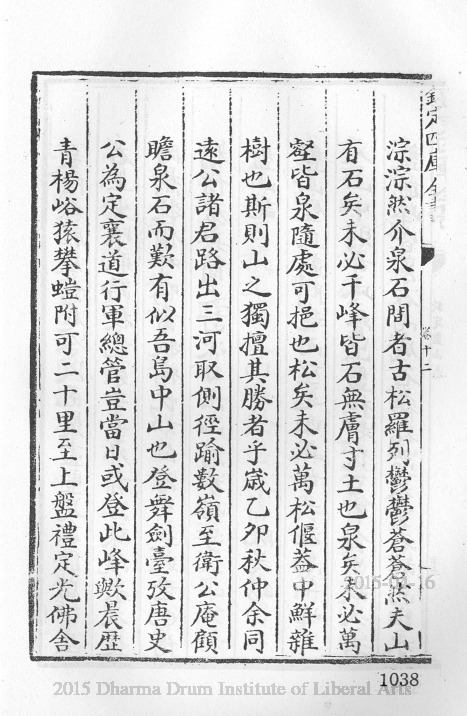 欽定四庫全書
卷十二
淙淙然介泉石間者古松羅列鬱鬱蒼蒼然夫山
有石矣未必千峰皆石無膚寸土也泉矣未必萬
壑皆泉隨處可挹也松矣未必萬松偃蓋中鮮雜
樹也斯則山之獨擅其勝者乎歲乙卯秋仲余同
遠公諸君路出三河取側徑踰數嶺至衛公庵顧
瞻泉石而歎有似吾島中山也登舞劍臺攷唐史
公為定襄道行軍總管豈當日或登此峰歟晨歷
青楊峪猿攀螘附可二十里至上盤禮定光佛舍
1038
2015 Dharma Drum Institute of Liberal Arts